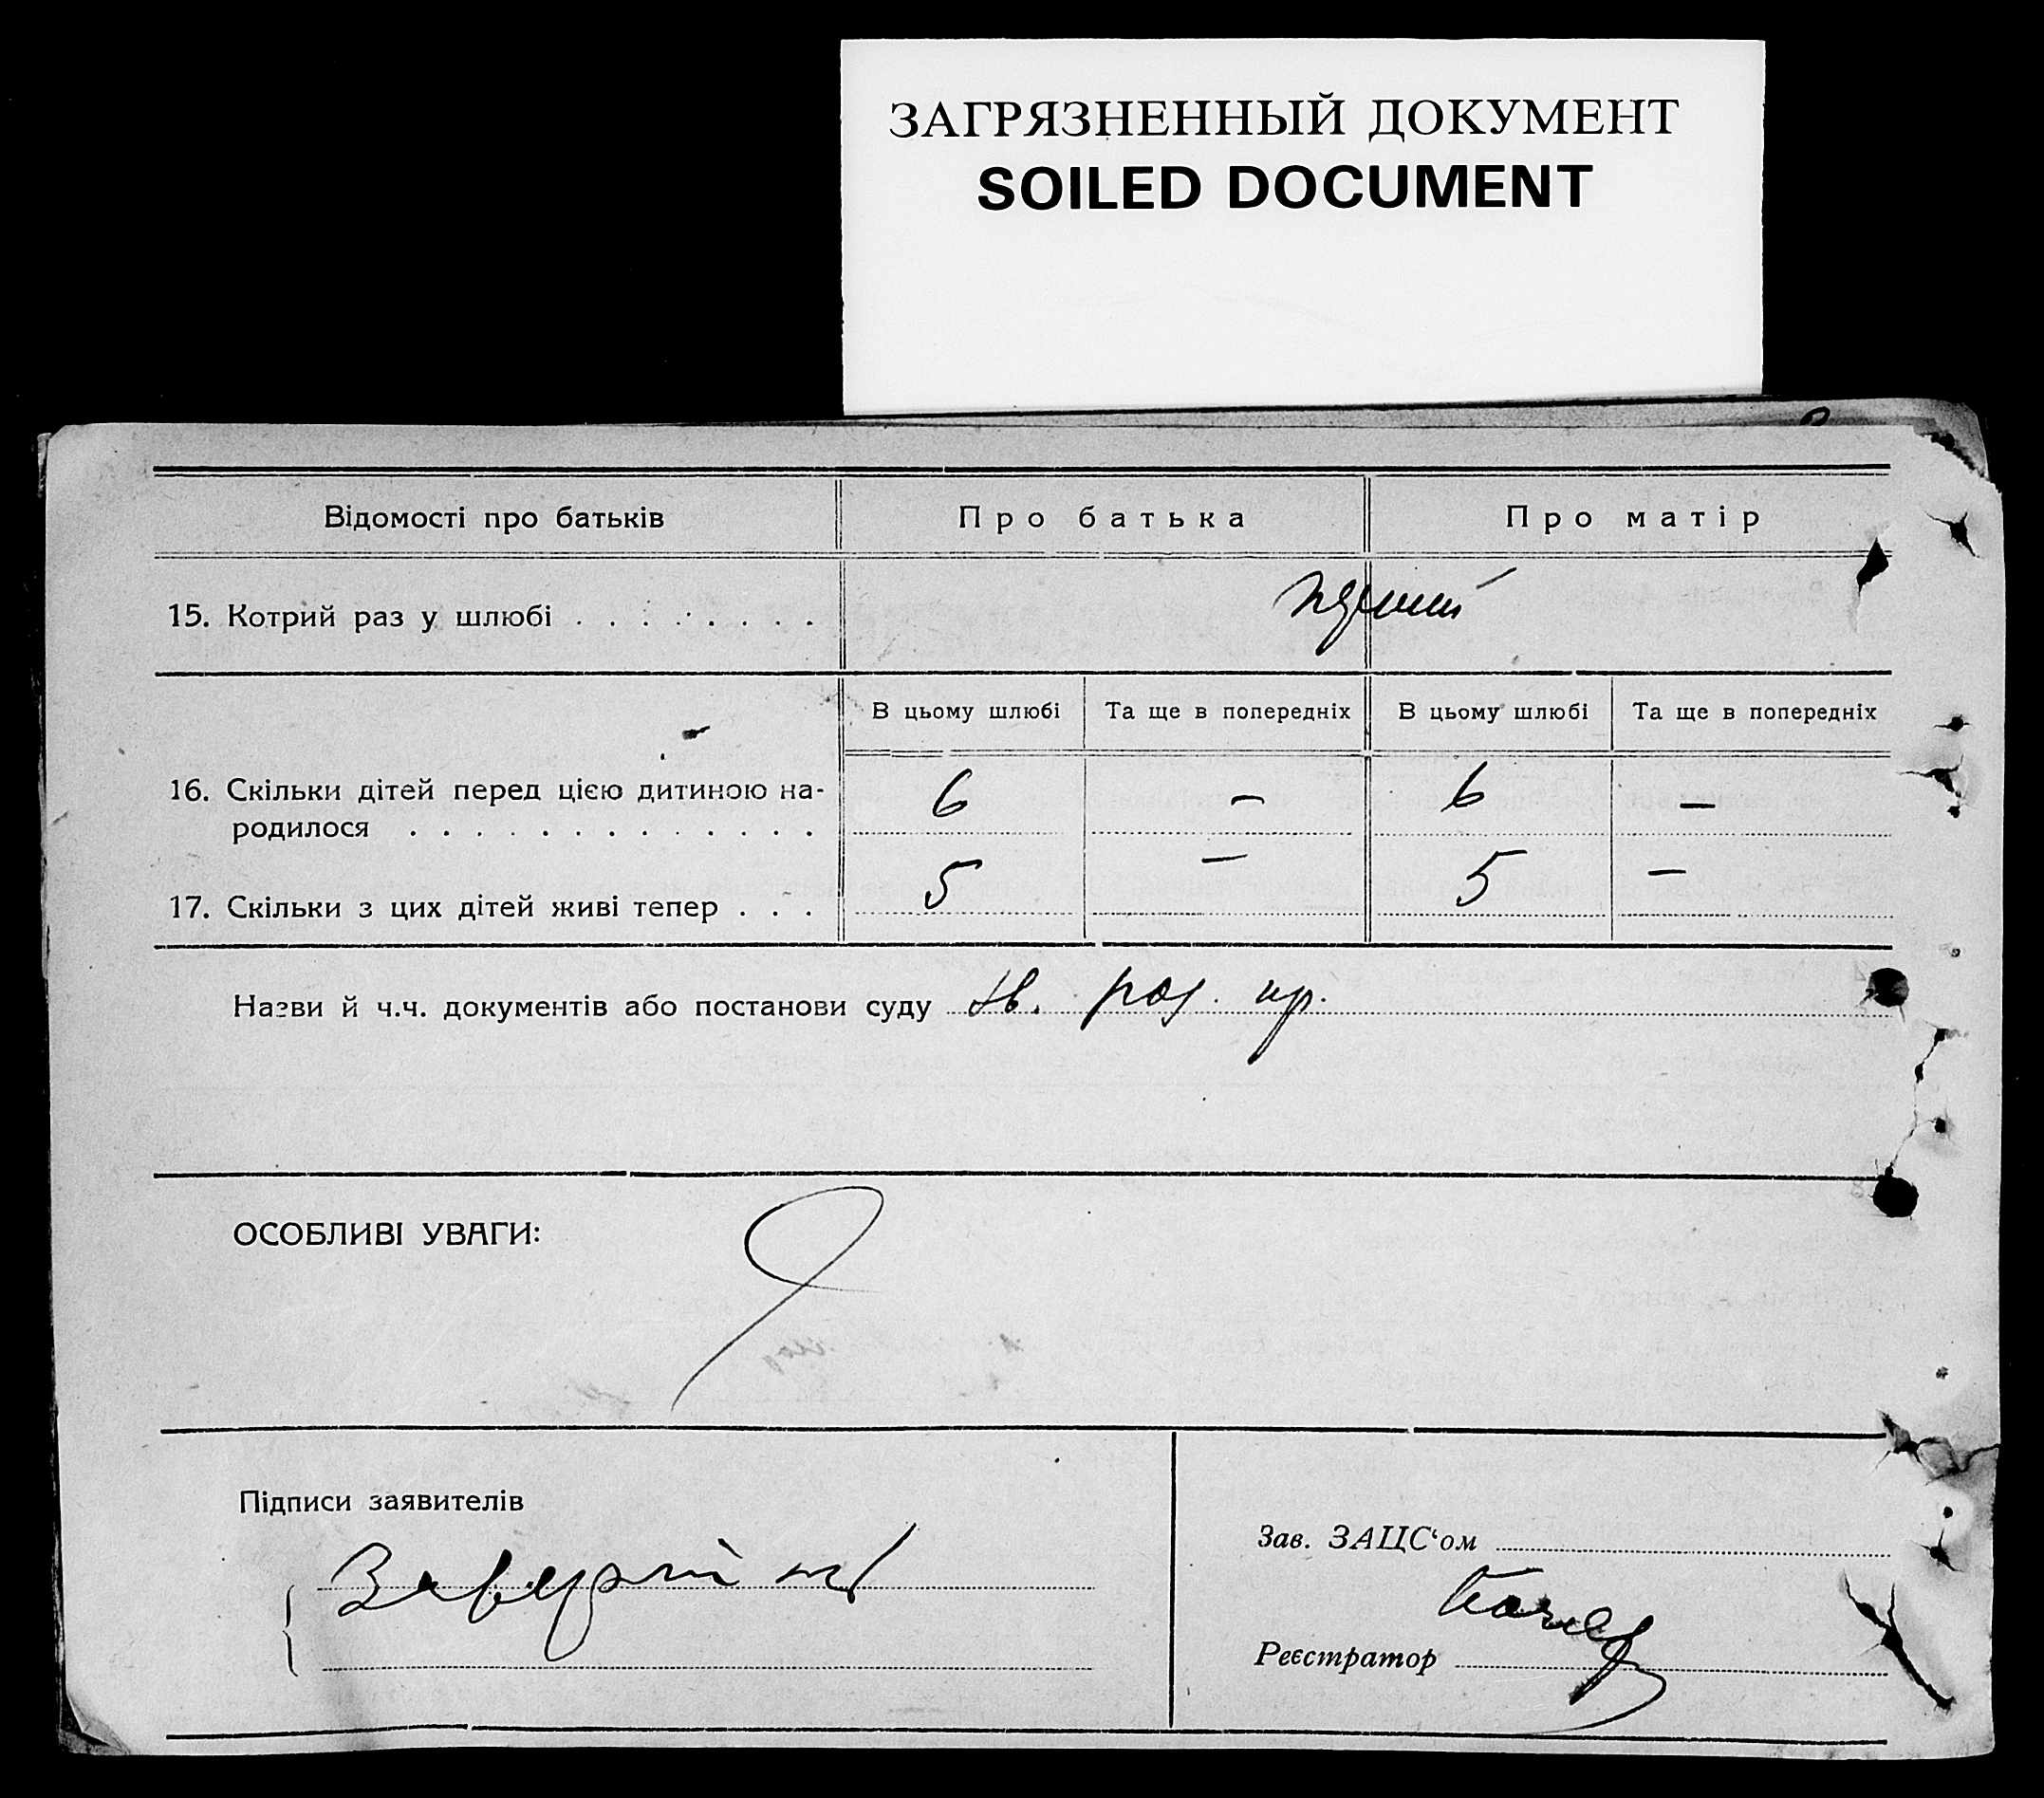 ЗАГРЯЗНЕННЫЙ ДОКУМЕНТ
SOILED DOCUMENT
Відомості про батьків Про батька Про матір
15. Котрий раз у шлюбі . . . . . . . .
В цьому шлюбі Та ще в попередніх В цьому шлюбі Та ще в попередніх
16. Скільки дітей перед цією дитиною на-
родилося . . . . . . . . . . . . . 6 – 6 –
17. Скільки з цих дітей живі тепер . . . 5 – 5 –
Назви й ч.ч. документів або постанови суду
ОСОБЛИВІ УВАГИ:
Підписи заявителів
Зав. ЗАЦС‘ом
Реєстратор